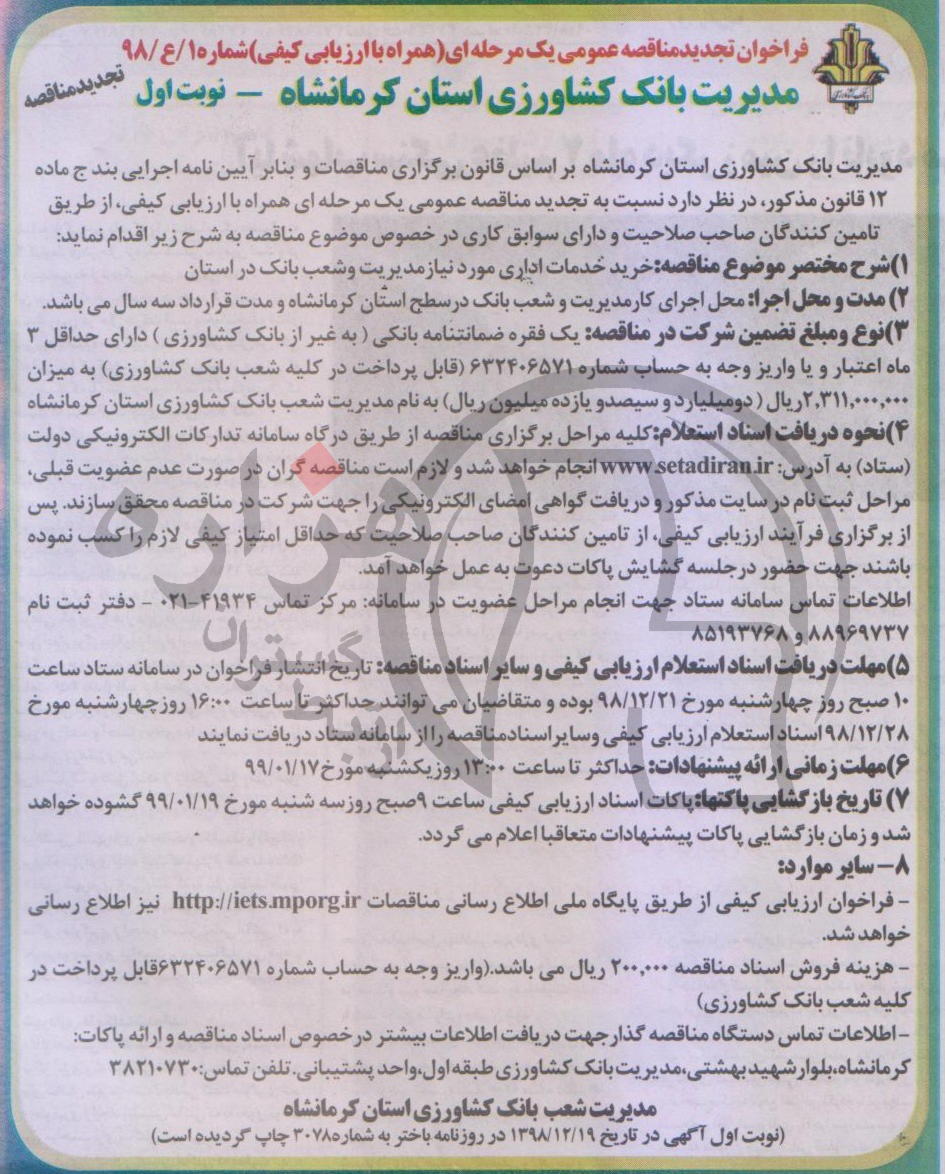 فراخوان تجدیدمناقصه عمومی یک مرحله ای(همراه با ارزیابی کیفی)شماره۱/ع/۹۸
مدیریت بانک کشاورزی استان کرمانشاه – نوبت اول
تجدیدمناقصه
بانک کشاورزی
مدیریت بانک کشاورزی استان کرمانشاه بر اساس قانون برگزاری مناقصات و بنابر آیین نامه اجرایی بند ج ماده
۱۲ قانون مذکور، در نظر دارد نسبت به تجدید مناقصه عمومی یک مرحله ای همراه با ارزیابی کیفی، از طریق
تامین کنندگان صاحب صلاحیت و دارای سوابق کاری در خصوص موضوع مناقصه به شرح زیر اقدام نماید:
۱)شرح مختصر موضوع مناقصه:خرید خدمات اداری مورد نیازمدیریت وشعب بانک در استان
۲) مدت و محل اجرا: محل اجرای کارمدیریت و شعب بانک درسطح استان کرمانشاه و مدت قرارداد سه سال می باشد.
۳)نوع ومبلغ تضمین شرکت در مناقصه: یک فقره ضمانتنامه بانکی ( به غیر از بانک کشاورزی ) دارای حداقل ۳
ماه اعتبار و یا واریز وجه به حساب شماره ۶۳۲۴۰۶۵۷۱ (قابل پرداخت در کلیه شعب بانک کشاورزی) به میزان
۲,۳۱۱,۰۰۰,۰۰۰ریال ( دومیلیارد و سیصدو یازده میلیون ریال) به نام مدیریت شعب بانک کشاورزی استان کرمانشاه
۴)نحوه دریافت اسناد استعلام:کلیه مراحل برگزاری مناقصه از طریق درگاه سامانه تدارکات الکترونیکی دولت
(ستاد) به آدرس: www.setadiran.ir انجام خواهد شد و لازم است مناقصه گران در صورت عدم عضویت قبلی،
مراحل ثبت نام در سایت مذکور و دریافت گواهی امضای الکترونیکی را جهت شرکت در مناقصه محقق سازند. پس
از برگزاری فرآیند ارزیابی کیفی، از تامین کنندگان صاحب صلاحیت که حداقل امتیاز کیفی لازم را کسب نموده
باشند جهت حضور درجلسه گشایش پاکات دعوت به عمل خواهد آمد.
اطلاعات تماس سامانه ستاد جهت انجام مراحل عضویت در سامانه: مرکز تماس ۴۱۹۳۴-۰۲۱ - دفتر ثبت نام
۸۸۹۶۹۷۳۷ و ۸۵۱۹۳۷۶۸
۵)مهلت دریافت اسناد استعلام ارزیابی کیفی و سایر اسناد مناقصه: تاریخ انتشار فراخوان در سامانه ستاد ساعت
۱۰ صبح روز چهارشنبه مورخ ۹۸/۱۲/۲۱ بوده و متقاضیان می توانند حداکثر تا ساعت ۱۶:۰۰ روزچهارشنبه مورخ
۹۸/۱۲/۲۸ اسناد استعلام ارزیابی کیفی وسایراسنادمناقصه را از سامانه ستاد دریافت نمایند
۶)مهلت زمانی ارائه پیشنهادات: حداکثر تا ساعت ۱۳:۰۰ روزیکشنبه مورخ ۹۹/۰۱/۱۷
۷) تاریخ بازگشایی پاکتها:پاکات اسناد ارزیابی کیفی ساعت ۹صبح روزسه شنبه مورخ ۹۹/۰۱/۱۹ گشوده خواهد
شد و زمان بازگشایی پاکات پیشنهادات متعاقبا اعلام می گردد.
۸- سایر موارد:
- فراخوان ارزیابی کیفی از طریق پایگاه ملی اطلاع رسانی مناقصات http://iets.mporg.ir نیز اطلاع رسانی
خواهد شد.
- هزینه فروش اسناد مناقصه ۲۰۰,۰۰۰ ریال می باشد.(واریز وجه به حساب شماره ۶۳۲۴۰۶۵۷۱قابل پرداخت در
کلیه شعب بانک کشاورزی)
-اطلاعات تماس دستگاه مناقصه گذار جهت دریافت اطلاعات بیشتر درخصوص اسناد مناقصه و ارائه پاکات:
کرمانشاه،بلوار شهید بهشتی،مدیریت بانک کشاورزی طبقه اول،واحد پشتیبانی.تلفن تماس:۳۸۲۱۰۷۳۰
مدیریت شعب بانک کشاورزی استان کرمانشاه
(نوبت اول آگهی در تاریخ ۱۳۹۸/۱۲/۱۹ در روزنامه باختر به شماره۳۰۷۸ چاپ گردیده است)
هزاره
گستران